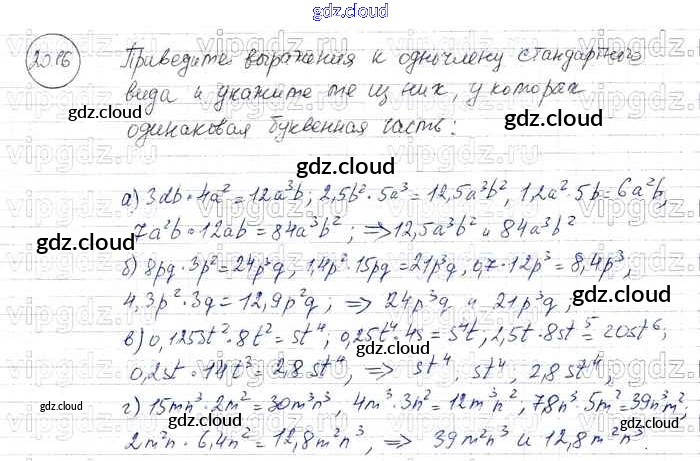 gdz.cloud
20.16
Приведите выражения к одночлену стандартного
вида и укажите те из них, у которых
одинаковая буквенная часть:
а) 3ab·4a² = 12a³b; 2,5b²·5a³ = 12,5a³b², 1,2a²·5b = 6a²b,
7a²b·12ab = 84a³b²; ⇒ 12,5a³b² и 84a³b²
б) 8pq·3p² = 24p³q, 1,4p²·15pq = 21p³q, 0,7·12p³ = 8,4p³,
4,3p²·3q = 12,9p²q; ⇒ 24p³q и 21p³q;
в) 0,125st²·8t² = st⁴, 0,25t⁴·4s = s⁴t; 2,5t·8st⁵ = 20st⁶;
0,2st·14t³ = 2,8st⁴, ⇒ st⁴, st⁴, 2,8st⁴,
г) 15mn³·2m² = 30m³n³, 4m³·3n² = 12m³n², 7,8n³·5m² = 39n³m²,
2m²n·6,4n² = 12,8m²n³, ⇒ 39m²n³ и 12,8m²n³.